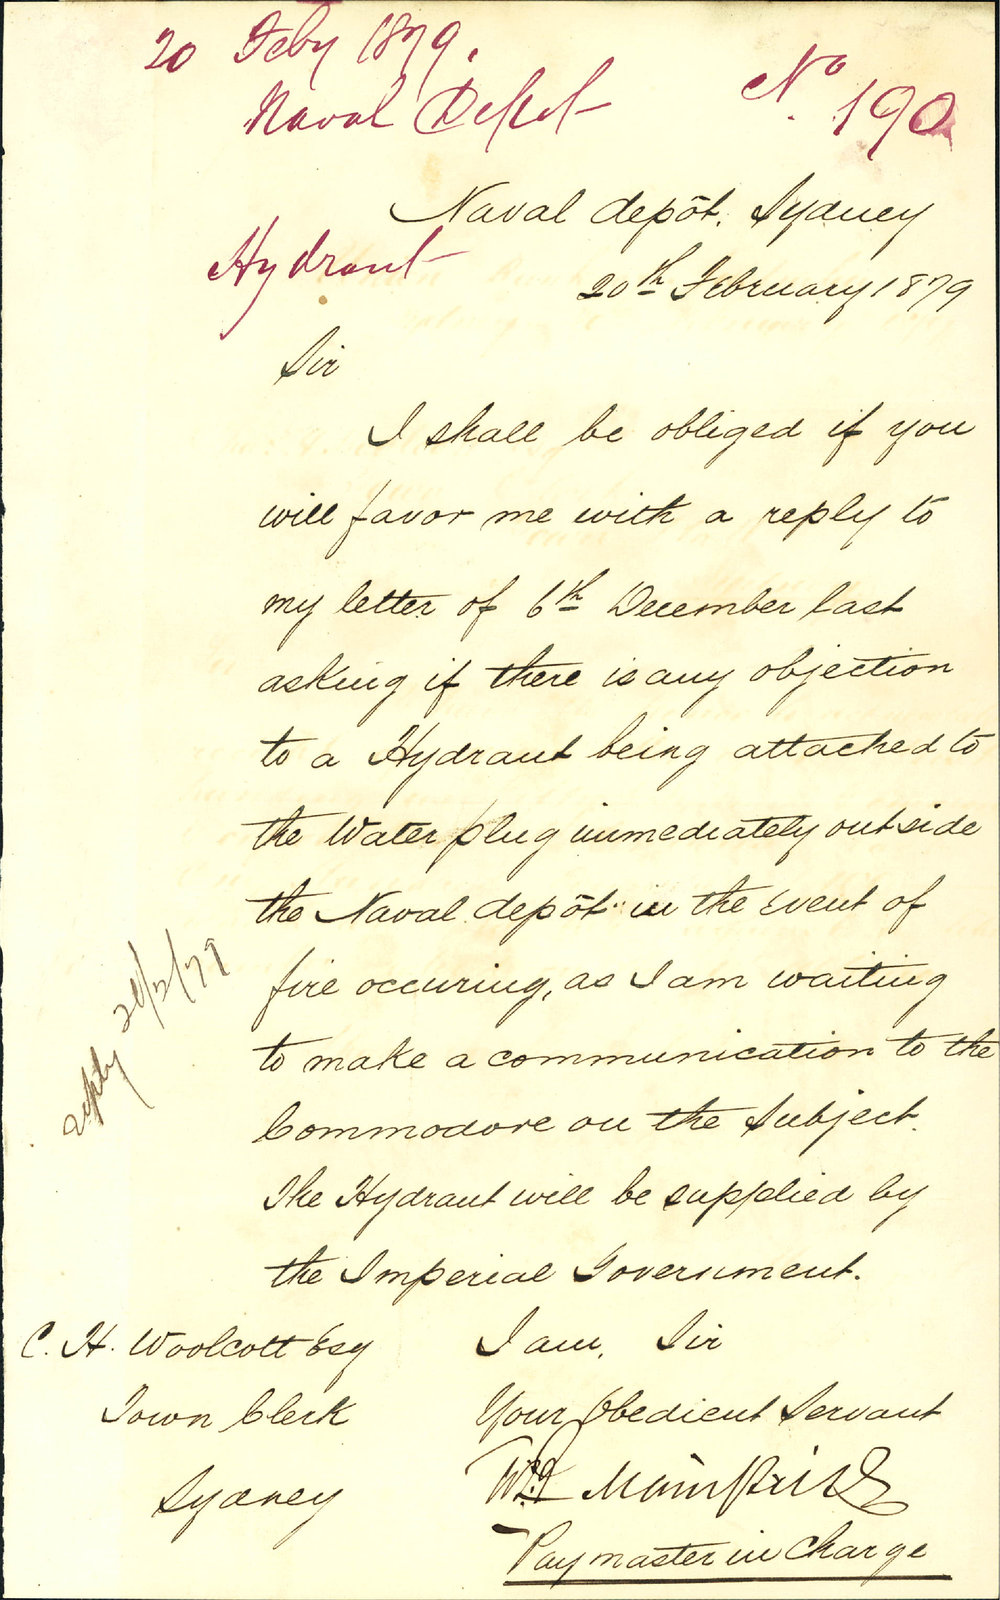 20 Feby 1879.
Naval Depot
No. 190
Hydrant
Naval depôt. Sydney
20th February 1879
Sir
I shall be obliged if you
will favor me with a reply to
my letter of 6th December last
asking if there is any objection
to a Hydrant being attached to
the Water plug immediately outside
the Naval depôt in the event of
fire occuring, as I am waiting
to make a communication to the
Commodore on the Subject.
The Hydrant will be supplied by
the Imperial Government.
I am, Sir
Your Obedient Servant
Paymaster in Charge
C. H. Woolcott Esq
Town Clerk
Sydney
reply